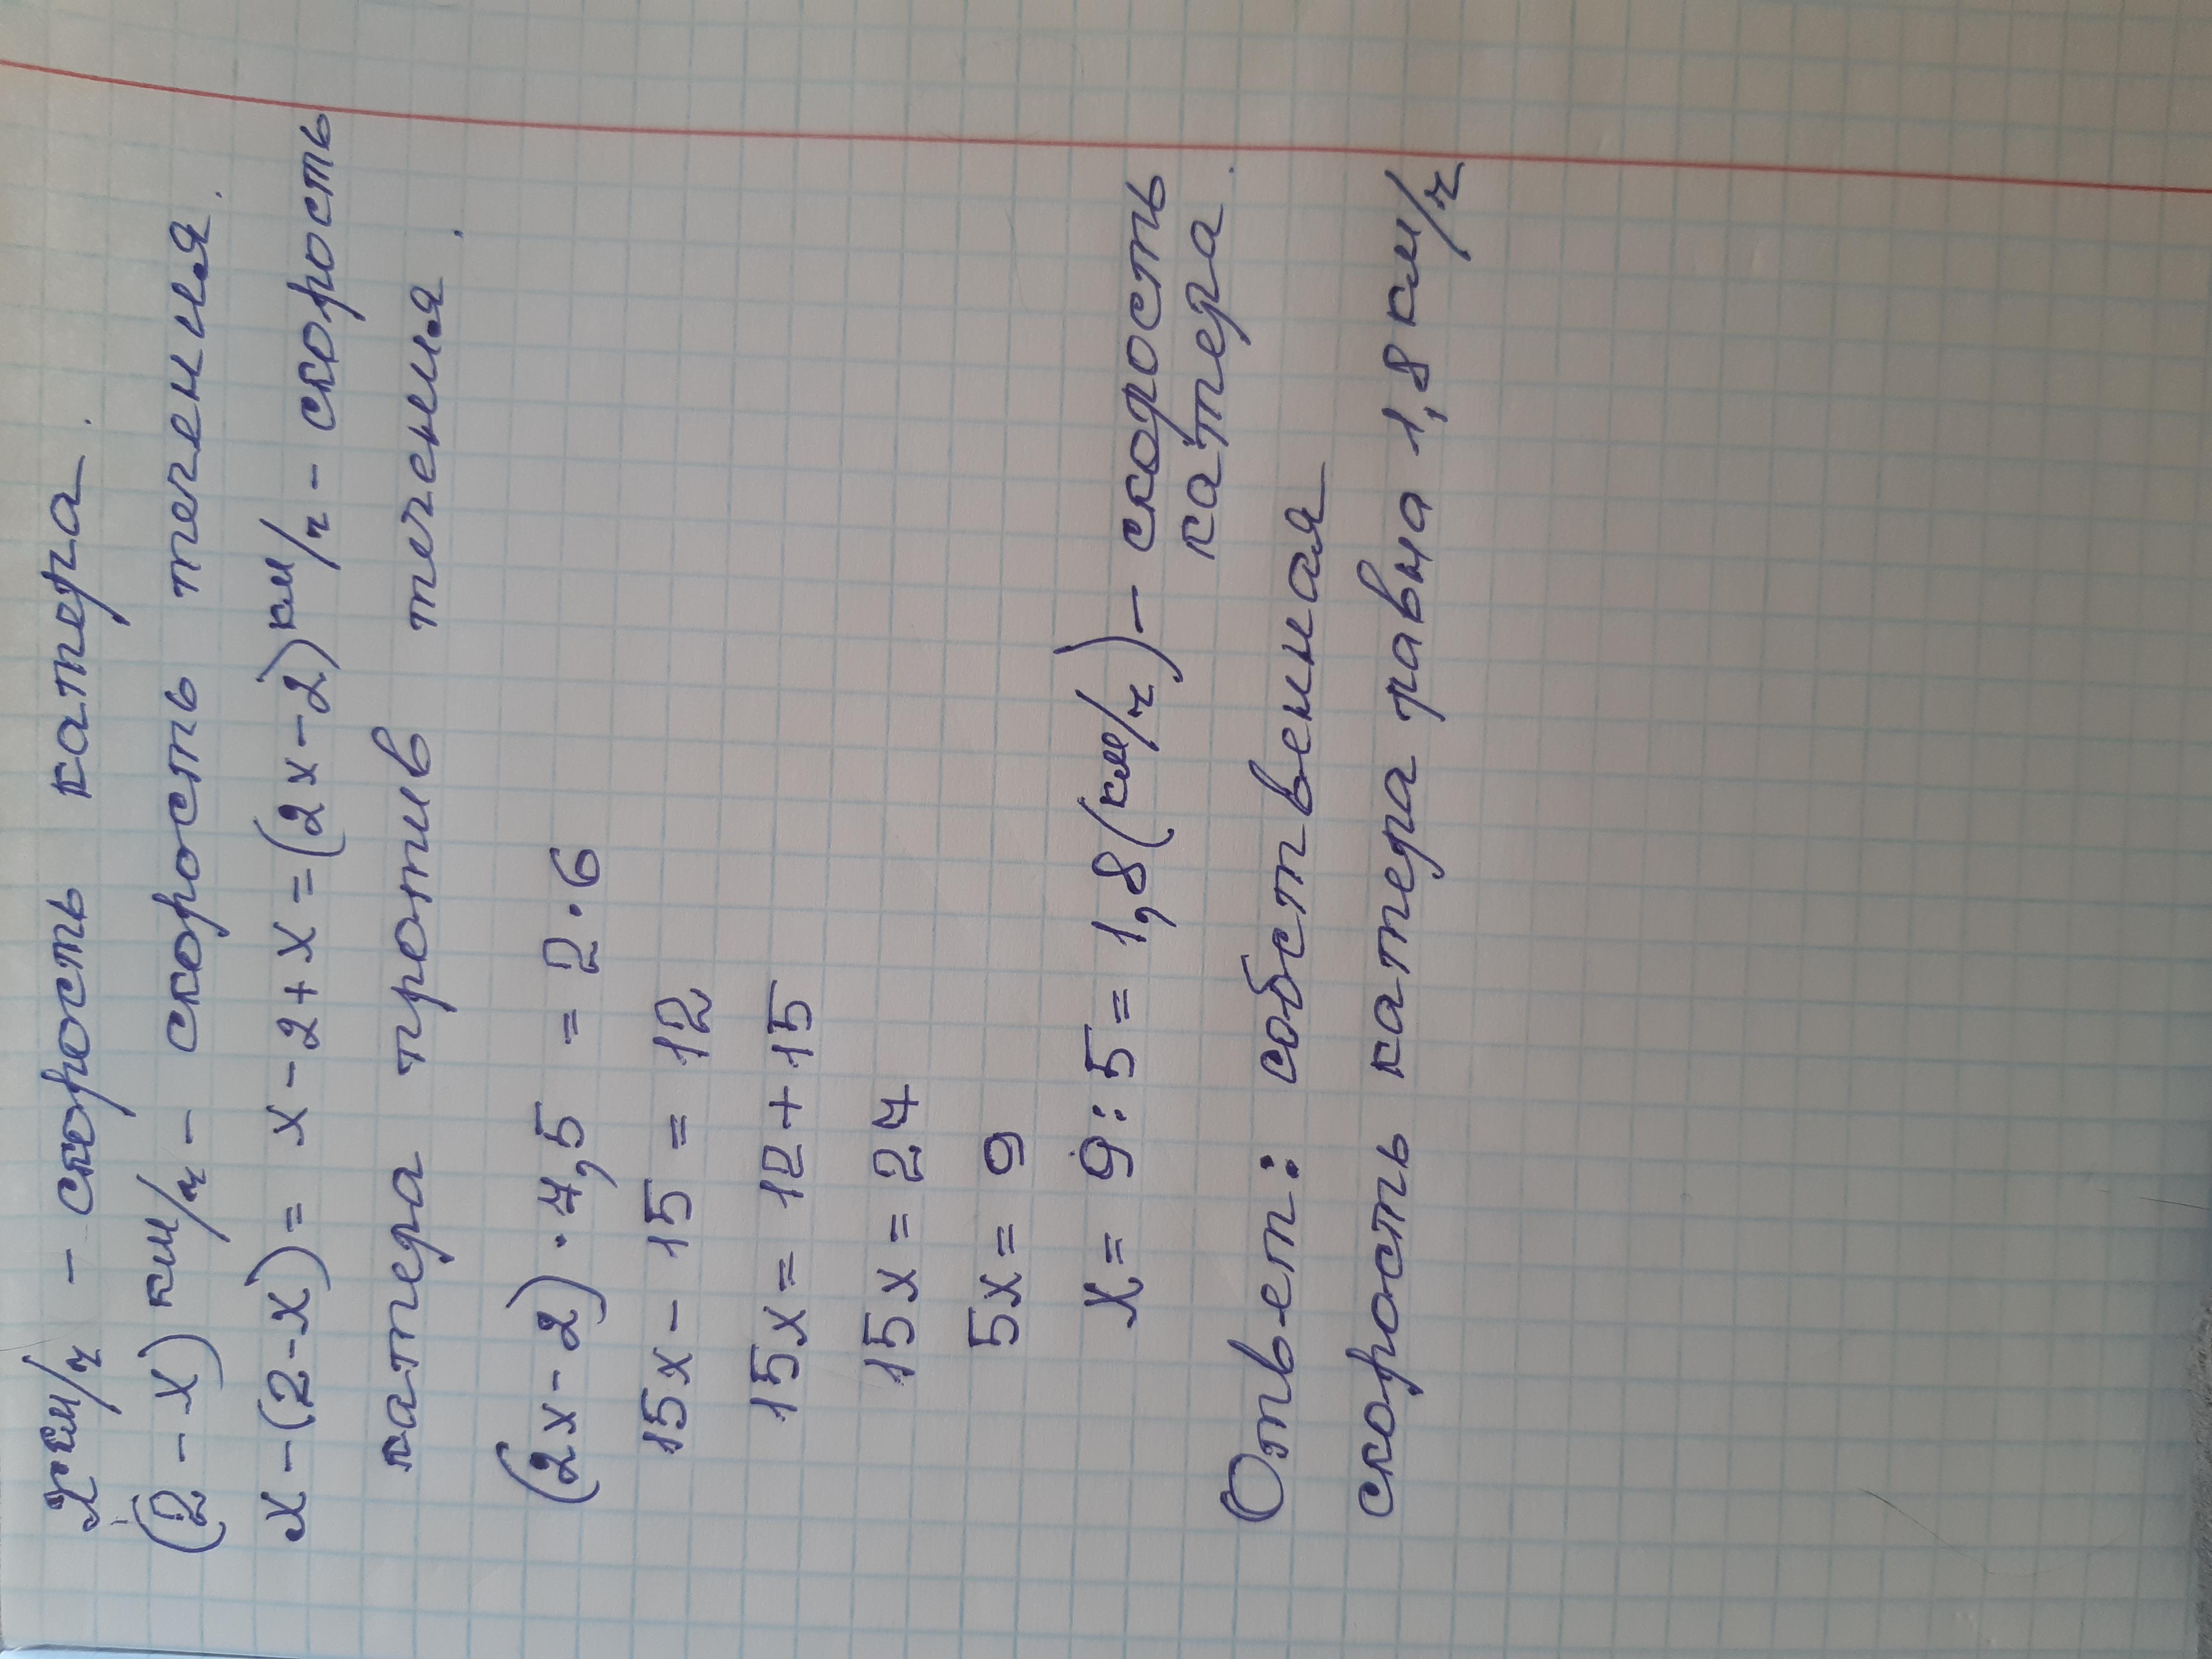 х км/ч - скорость катера.
(2-х) км/ч - скорость течения.
х-(2-х)= х-2+х=(2х-2)км/ч - скорость
катера против течения.
(2х-2)·7,5 = 2·6
15х-15 = 12
15х= 12+15
15х=27
5х=9
х= 9:5= 1,8(км/ч)- скорость
катера.
Ответ: собственная
скорость катера равна 1,8 км/ч